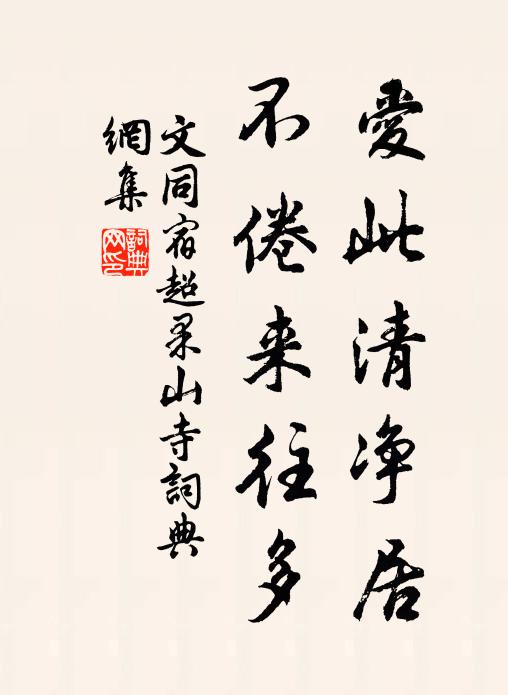 愛此清净居
不倦来往多
文同宿超果山寺詞典
網集
詞典
网印